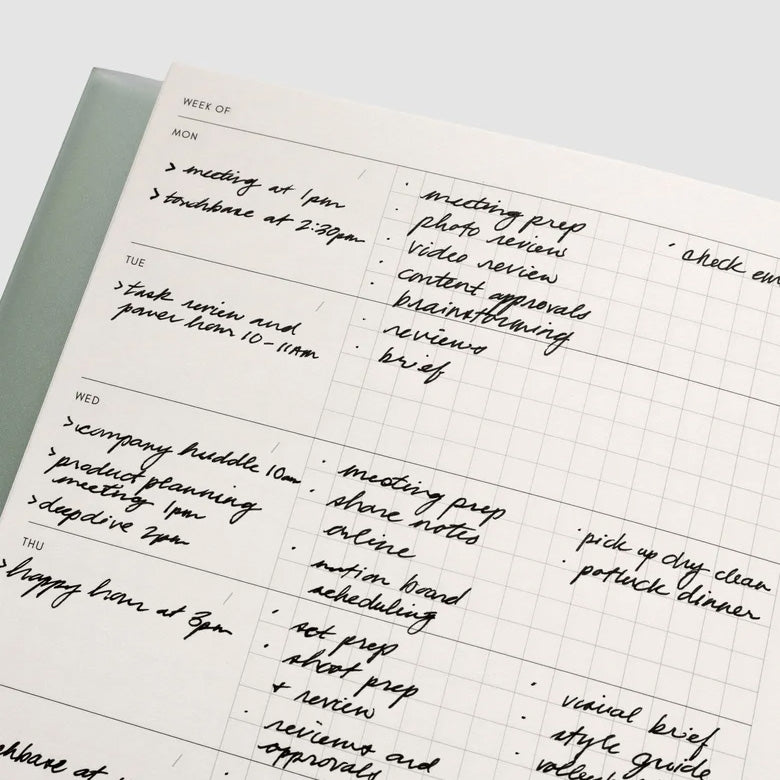 WEEK OF
MON
> meeting at 1pm
> touchbase at 2:30pm
· meeting prep
· photo review
· video review
· content approvals
· brainstorming
· check em
TUE
> task review and
power hour 10-11AM
· reviews
· brief
WED
> company huddle 10am
> product planning
meeting 1pm
> deep dive 2pm
· meeting prep
· share notes
online
· notion board
scheduling
· pick up dry clean
· potluck dinner
THU
> happy hour at 3pm
· set prep
· shoot prep
+ review
· reviews and
approvals
· visual brief
· style guide
at